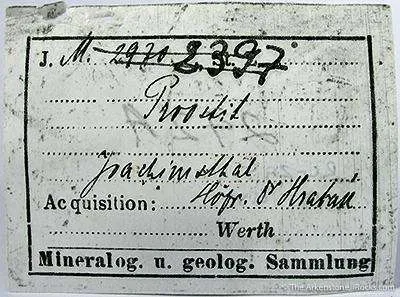 J. M. 2970 2397
Proustit
Joachimsthal
Acquisition: Hofr. Dr Hrabák
Werth
Mineralog. u. geolog. Sammlung
© The Arkenstone, iRocks.com